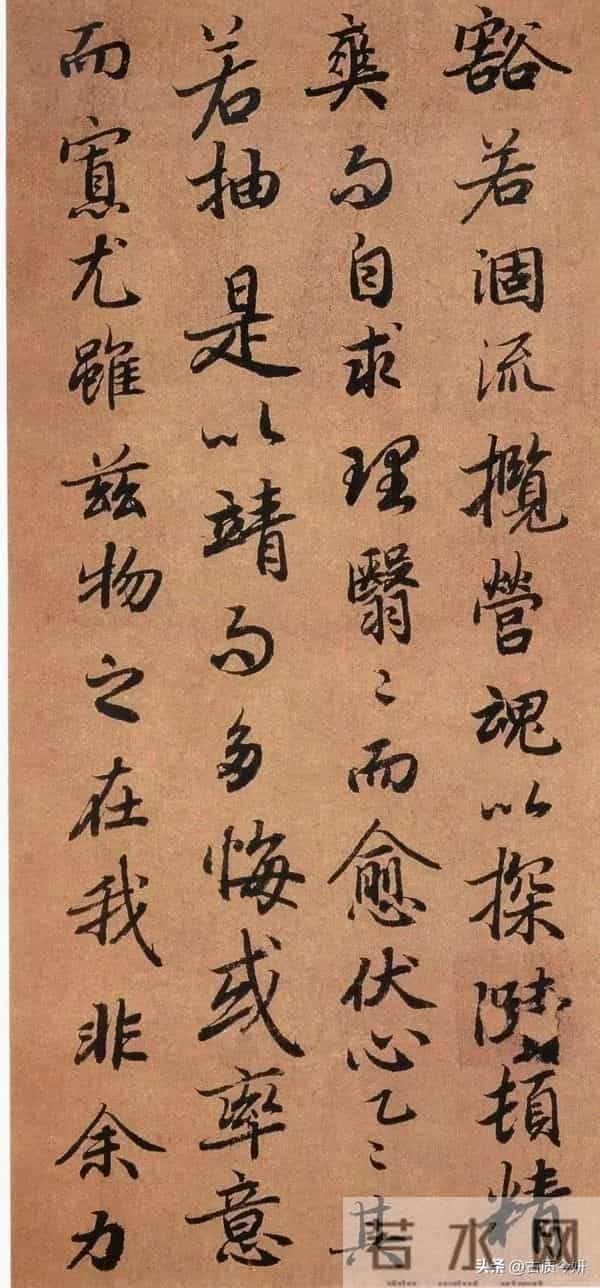 豁若涸流攬營魂以探賾頓精
爽而自求理翳〻而愈伏心乙〻其
若抽是以靖而多悔或率意
而寡尤雖茲物之在我非余力
若水网
头条 @古质今妍